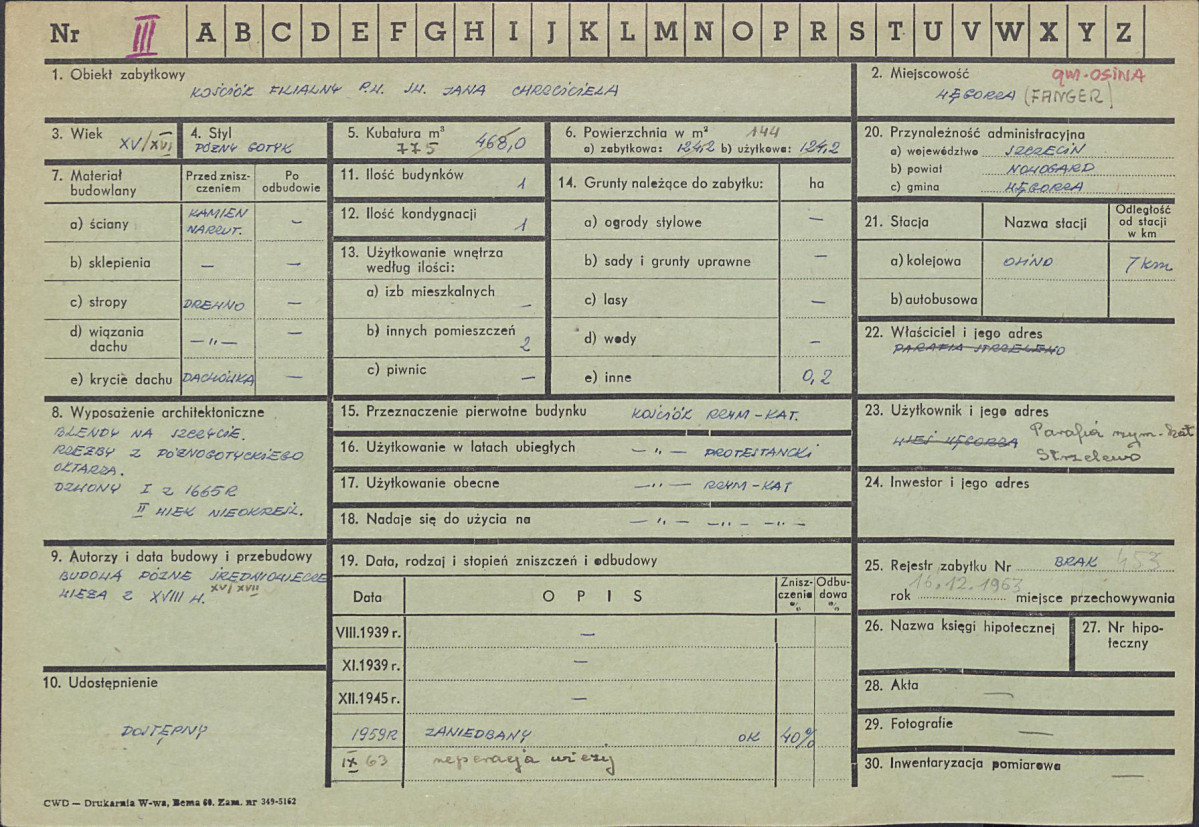 Nr III A B C D E F G H I J K L M N O P R S T U V W X Y Z
1. Obiekt zabytkowy
KOŚCIÓŁ FILIALNY P.W. ŚW. JANA CHRZCICIELA
2. Miejscowość gm. OSINA
WĘGORZA (FANGER)
3. Wiek
XV/XVI
4. Styl
PÓŹNY GOTYK
5. Kubatura m³
775 468,0
6. Powierzchnia w m² 144
a) zabytkowa: 124,2 b) użytkowa: 124,2
20. Przynależność administracyjna
a) województwo SZCZECIN
b) powiat NOWOGARD
c) gmina WĘGORZA
7. Materiał budowlany
Przed zniszczeniem
Po odbudowie
a) ściany KAMIEŃ NARZUT. —
b) sklepienia — —
c) stropy DREWNO —
d) wiązania dachu — „ — —
e) krycie dachu DACHÓWKA —
11. Ilość budynków 1
12. Ilość kondygnacji 1
13. Użytkowanie wnętrza
według ilości:
a) izb mieszkalnych —
b) innych pomieszczeń 2
c) piwnic —
14. Grunty należące do zabytku: ha
a) ogrody stylowe —
b) sady i grunty uprawne —
c) lasy —
d) wody —
e) inne 0,2
21. Stacja Nazwa stacji Odległość od stacji w km
a) kolejowa 7 km
b) autobusowa
22. Właściciel i jego adres
PARAFIA STRZELEWO
8. Wyposażenie architektoniczne
BLENDY NA SZCZYCIE.
RZEŹBY Z PÓŹNOGOTYCKIEGO
OŁTARZA.
DZWONY I Z 1665 R
II WIEK NIEOKREŚL.
15. Przeznaczenie pierwotne budynku KOŚCIÓŁ RZYM-KAT.
16. Użytkowanie w latach ubiegłych — „ — PROTESTANCKI
17. Użytkowanie obecne — „ — RZYM-KAT
18. Nadaje się do użycia na — „ — — „ — — „ —
23. Użytkownik i jego adres
WIEŚ WĘGORZA Parafia rzym.-kat
Strzelewo
24. Inwestor i jego adres
9. Autorzy i data budowy i przebudowy
BUDOWA PÓŹNE ŚREDNIOWIECZE
WIEŻA Z XVIII W. XVI/XVII
19. Data, rodzaj i stopień zniszczeń i odbudowy
Data OPIS Zniszczenie % Odbudowa %
VIII.1939 r. —
XI.1939 r. —
XII.1945 r. —
1959 R ZANIEDBANY OK 40%
IX 63 reperacja wieży
25. Rejestr zabytku Nr BRAK 453
rok 16.12.1963 miejsce przechowywania
26. Nazwa księgi hipotecznej
27. Nr hipoteczny
10. Udostępnienie
DOSTĘPNY
28. Akta —
29. Fotografie —
30. Inwentaryzacja pomiarowa —
CWD — Drukarnia W-wa, Bema 60. Zam. nr 349-5162